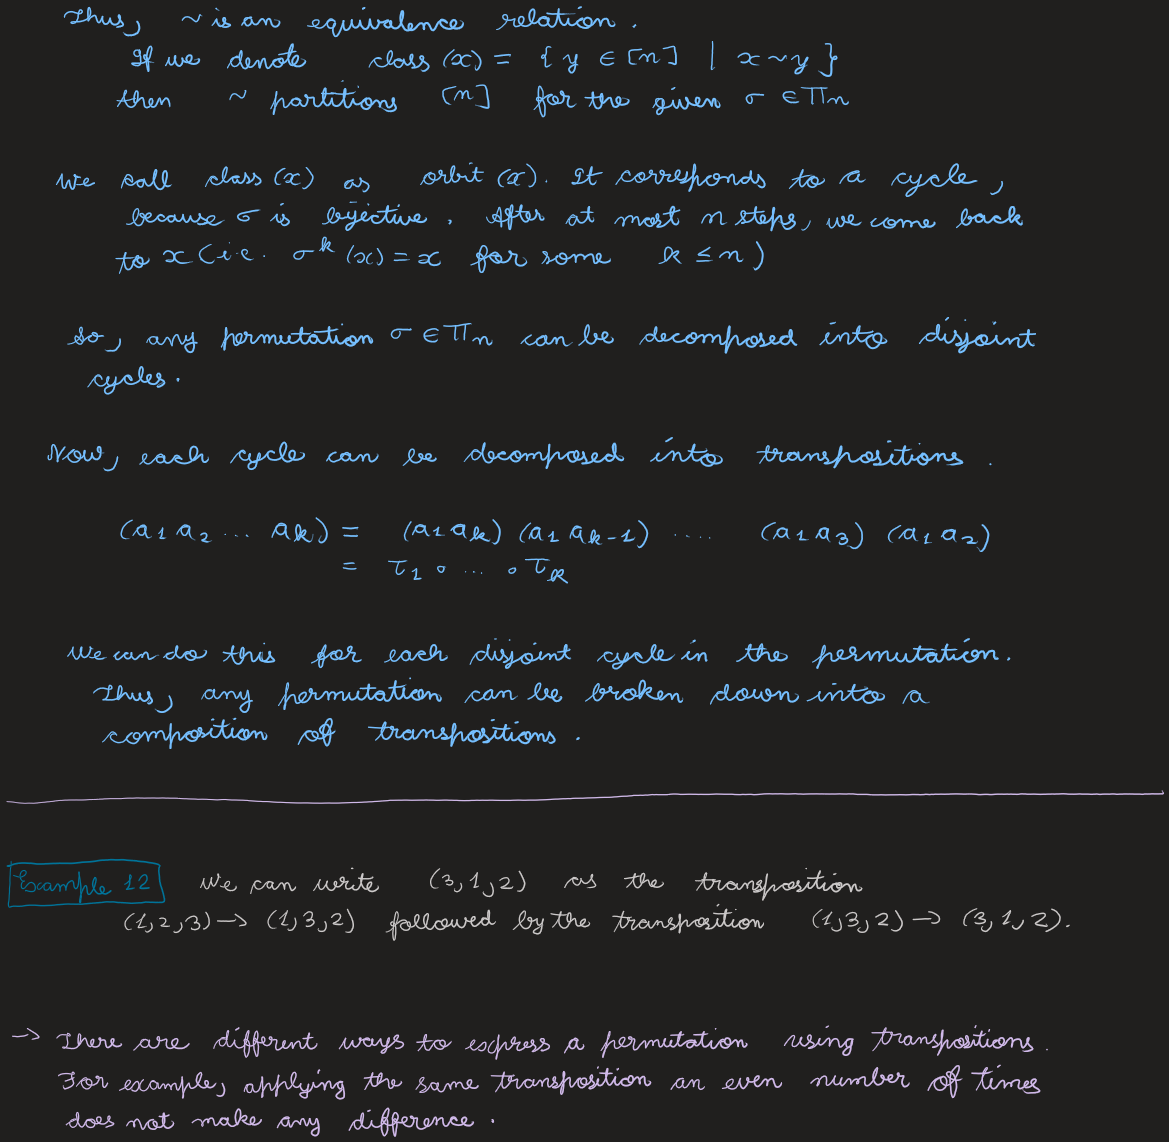 Thus, ~ is an equivalence relation.
If we denote class (x) = { y ∈ [n] | x ~ y }
then ~ partitions [n] for the given σ ∈ Πn
We call class (x) as orbit (x). It corresponds to a cycle,
because σ is bijective. After at most n steps, we come back
to x (i.e. σ^k (x) = x for some k ≤ n)
So, any permutation σ ∈ Πn can be decomposed into disjoint
cycles.
Now, each cycle can be decomposed into transpositions.
(a₁ a₂ ... aₖ) = (a₁ aₖ) (a₁ aₖ₋₁) .... (a₁ a₃) (a₁ a₂)
= τ₁ ∘ ... ∘ τₖ
We can do this for each disjoint cycle in the permutation.
Thus, any permutation can be broken down into a
composition of transpositions.
Example 12 We can write (3,1,2) as the transposition
(1,2,3) → (1,3,2) followed by the transposition (1,3,2) → (3,1,2).
→ There are different ways to express a permutation using transpositions.
For example, applying the same transposition an even number of times
does not make any difference.